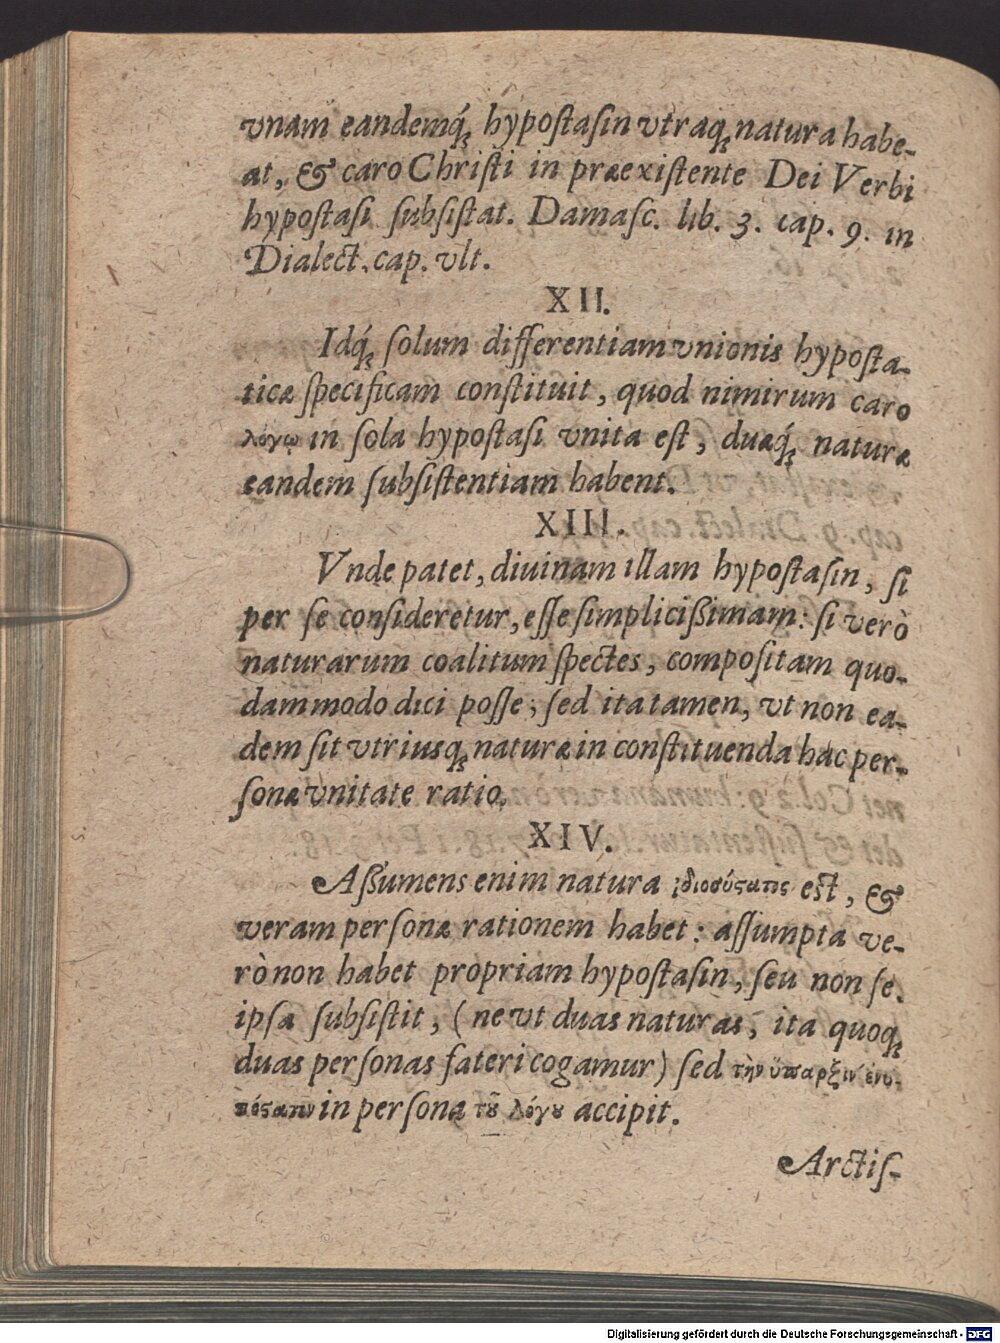 vnam eandemq́; hypostasin vtraq; natura habe-
at, & caro Christi in præexistente Dei Verbi
hypostasi subsistat. Damasc. lib. 3. cap. 9. in
Dialect. cap. vlt.
XII.
Idq́; solum differentiam vnionis hyposta-
ticæ specificam constituit, quod nimirum caro
λόγῳ in sola hypostasi vnita est, duæq́; naturæ
eandem subsistentiam habent.
XIII.
Vnde patet, diuinam illam hypostasin, si
per se consideretur, esse simplicißimam: si verò
naturarum coalitum spectes, compositam quo-
dammodo dici posse; sed ita tamen, vt non ea-
dem sit vtriusq; naturæ in constituenda hac per-
sonæ vnitate ratio.
XIV.
Aßumens enim natura ἰδιοσύστατις est, &
veram personæ rationem habet: assumpta ve-
rò non habet propriam hypostasin, seu non se
ipsa subsistit, (ne vt duas naturas, ita quoq;
duas personas fateri cogamur) sed τὴν ὕπαρξιν ἐνυ-
πόστατον in persona τοῦ λόγου accipit.
Arctis-
Digitalisierung gefördert durch die Deutsche Forschungsgemeinschaft - DFG